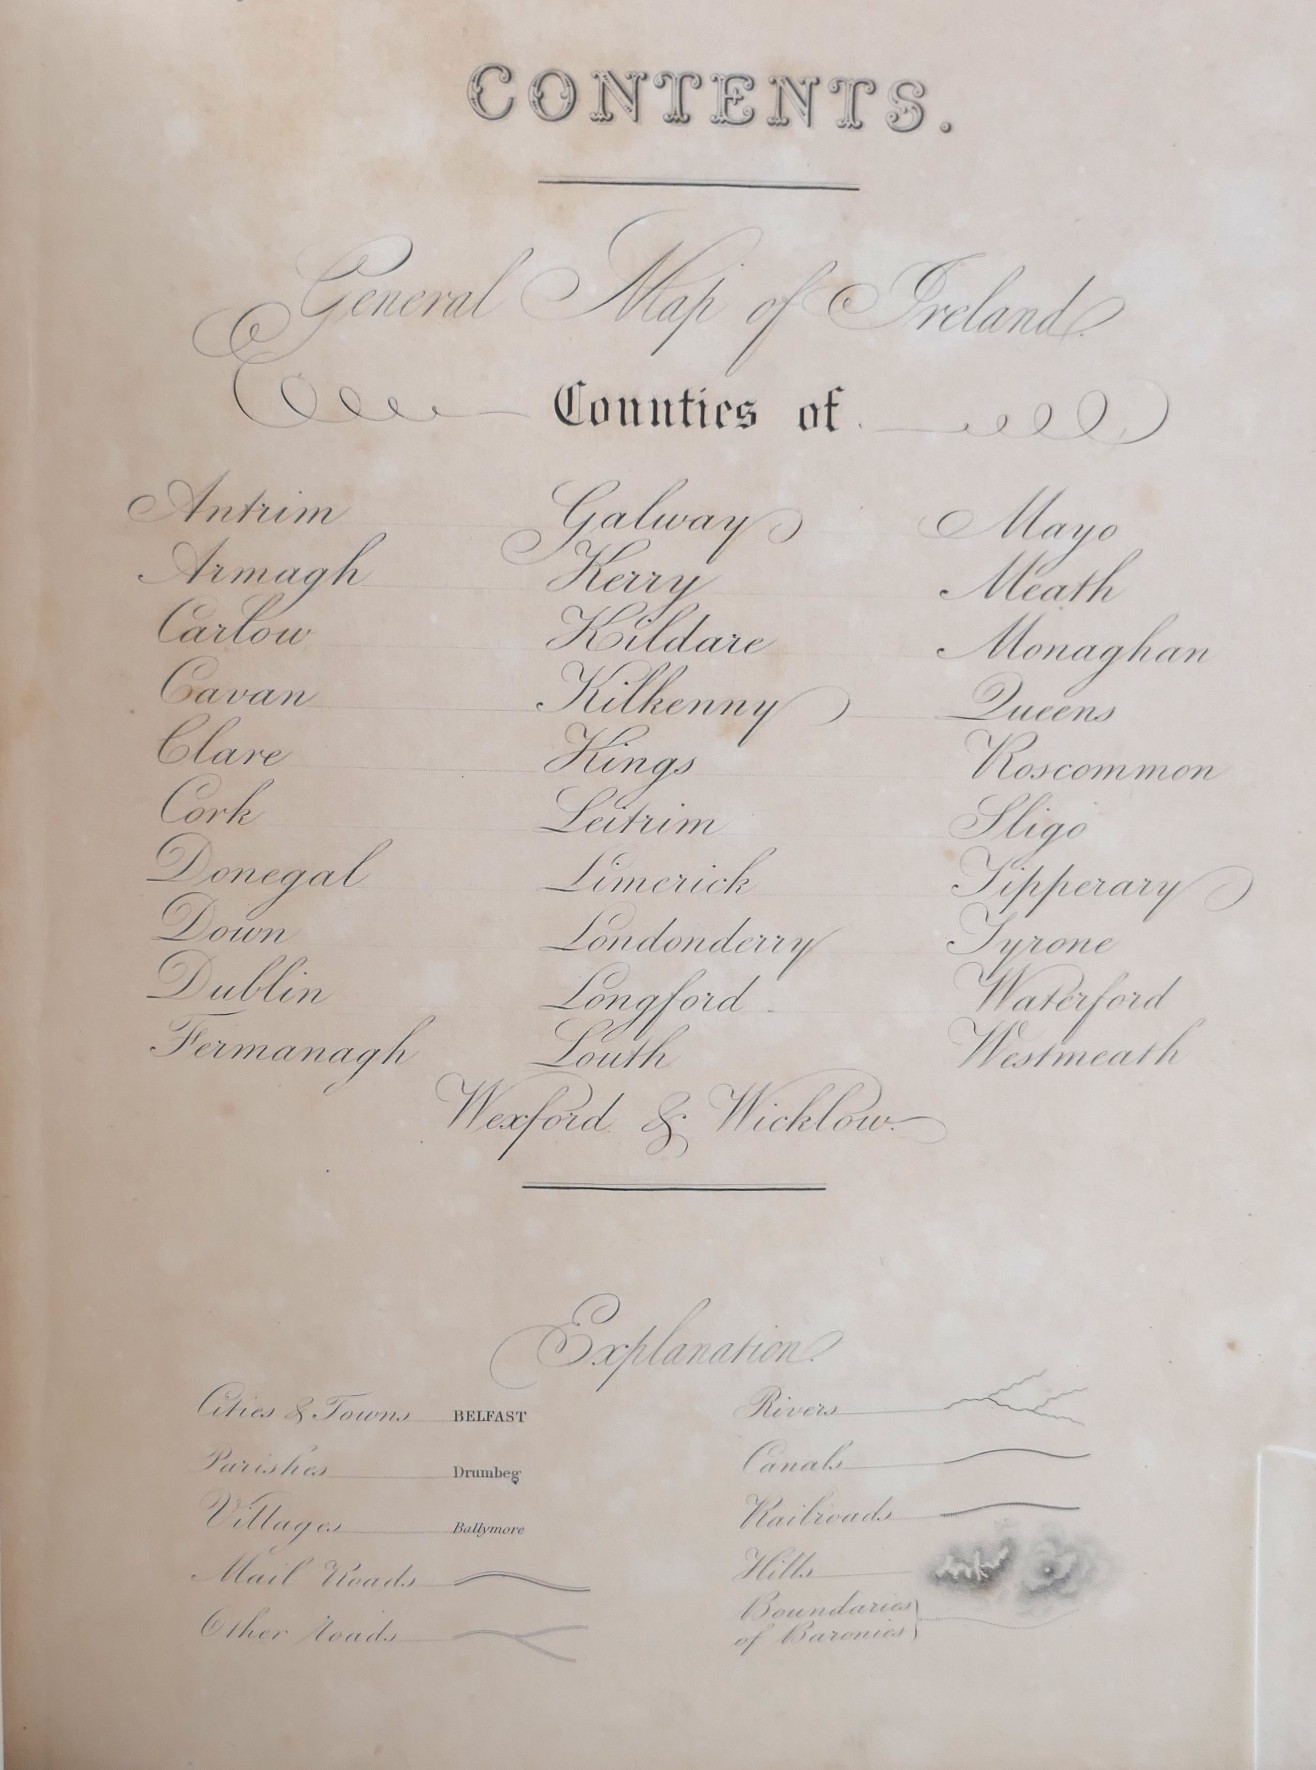 CONTENTS.
General Map of Ireland.
Counties of
Antrim Galway Mayo
Armagh Kerry Meath
Carlow Kildare Monaghan
Cavan Kilkenny Queens
Clare Kings Roscommon
Cork Leitrim Sligo
Donegal Limerick Tipperary
Down Londonderry Tyrone
Dublin Longford Waterford
Fermanagh Louth Westmeath
Wexford & Wicklow.
Explanation.
Cities & Towns BELFAST
Parishes Drumbeg
Villages Ballymore
Mail Roads
Other Roads
Rivers
Canals
Railroads
Hills
Boundaries
of Baronies